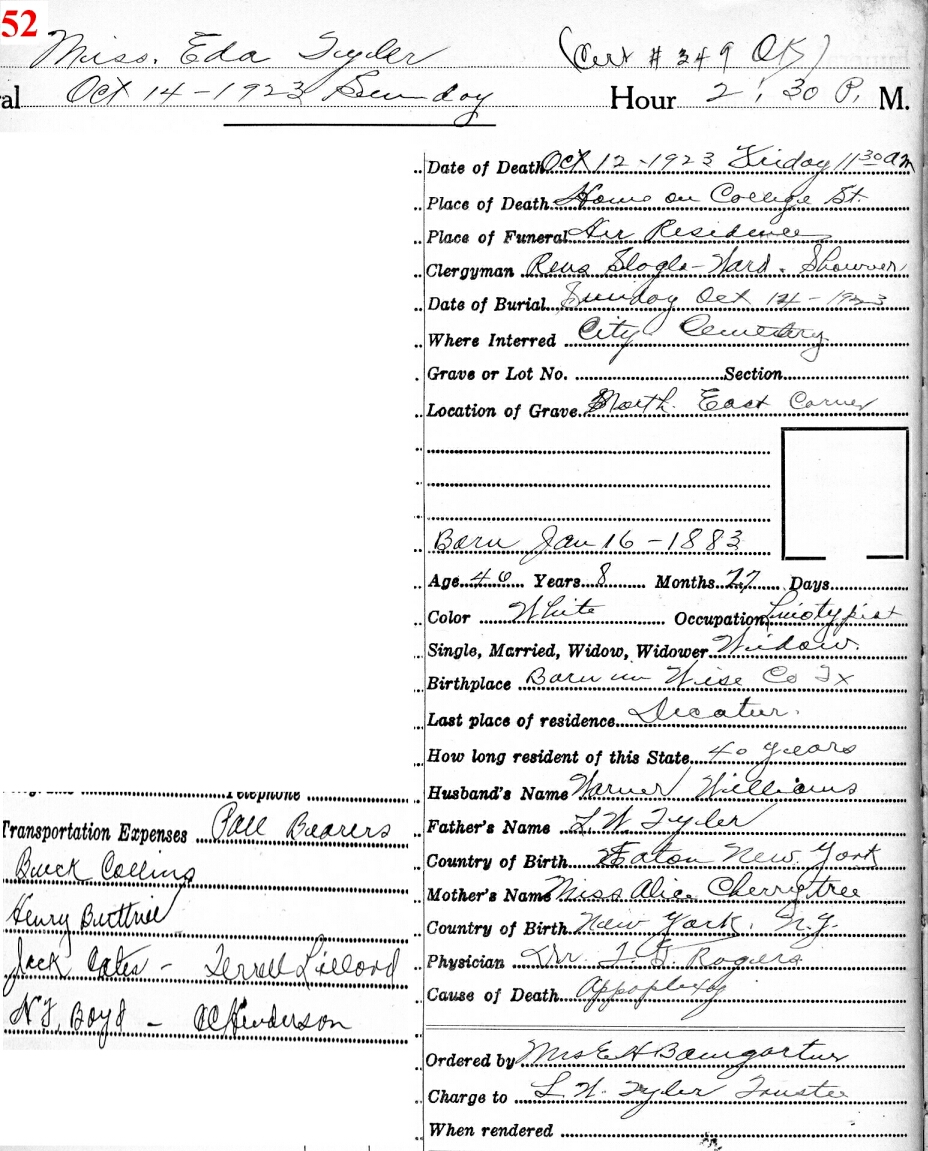 52
Miss. Eda Tyler (Cert # 349 OK)
al Oct 14-1923 Sunday Hour 2:30 P. M.
Date of Death Oct 12-1923 Friday 11 30 am
Place of Death Home on College St.
Place of Funeral Her Residence
Clergyman Revs Slogle-Ward.
Date of Burial Sunday Oct 14-1923
Where Interred City Cemetery
Grave or Lot No. Section
Location of Grave North East Corner
Born Jan 16-1883
Age 40 Years 8 Months 27 Days
Color White Occupation Linotypist
Single, Married, Widow, Widower Widow.
Birthplace Born in Wise Co Tx
Last place of residence Decatur.
How long resident of this State 40 years
Husband's Name Warner Williams
Father's Name L W Tyler
Country of Birth Eaton New York
Mother's Name Miss Alice Cherrytree
Country of Birth New York, N.Y.
Physician Dr. T. G. Rogers
Cause of Death Appoplexy
Ordered by Mrs E H Baumgartner
Charge to L. W. Tyler Trustee
When rendered
Telephone
Transportation Expenses Pall Bearers
Buck Collins
Henry Buttrill
Jack Cates - Terrell Lillard
N J, Boyd - OC Henderson